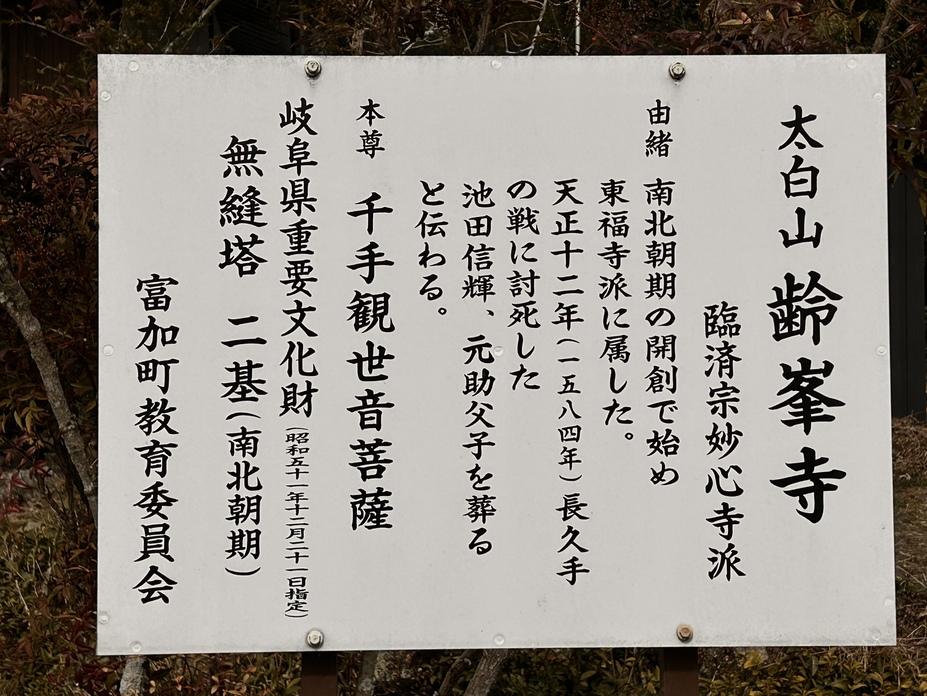 太白山 齢峯寺
臨済宗妙心寺派
由緒 南北朝期の開創で始め
東福寺派に属した。
天正十二年(一五八四年)長久手
の戦に討死した
池田信輝、元助父子を葬る
と伝わる。
本尊 千手観世音菩薩
岐阜県重要文化財(昭和五十一年十二月二十一日指定)
無縫塔 二基(南北朝期)
富加町教育委員会